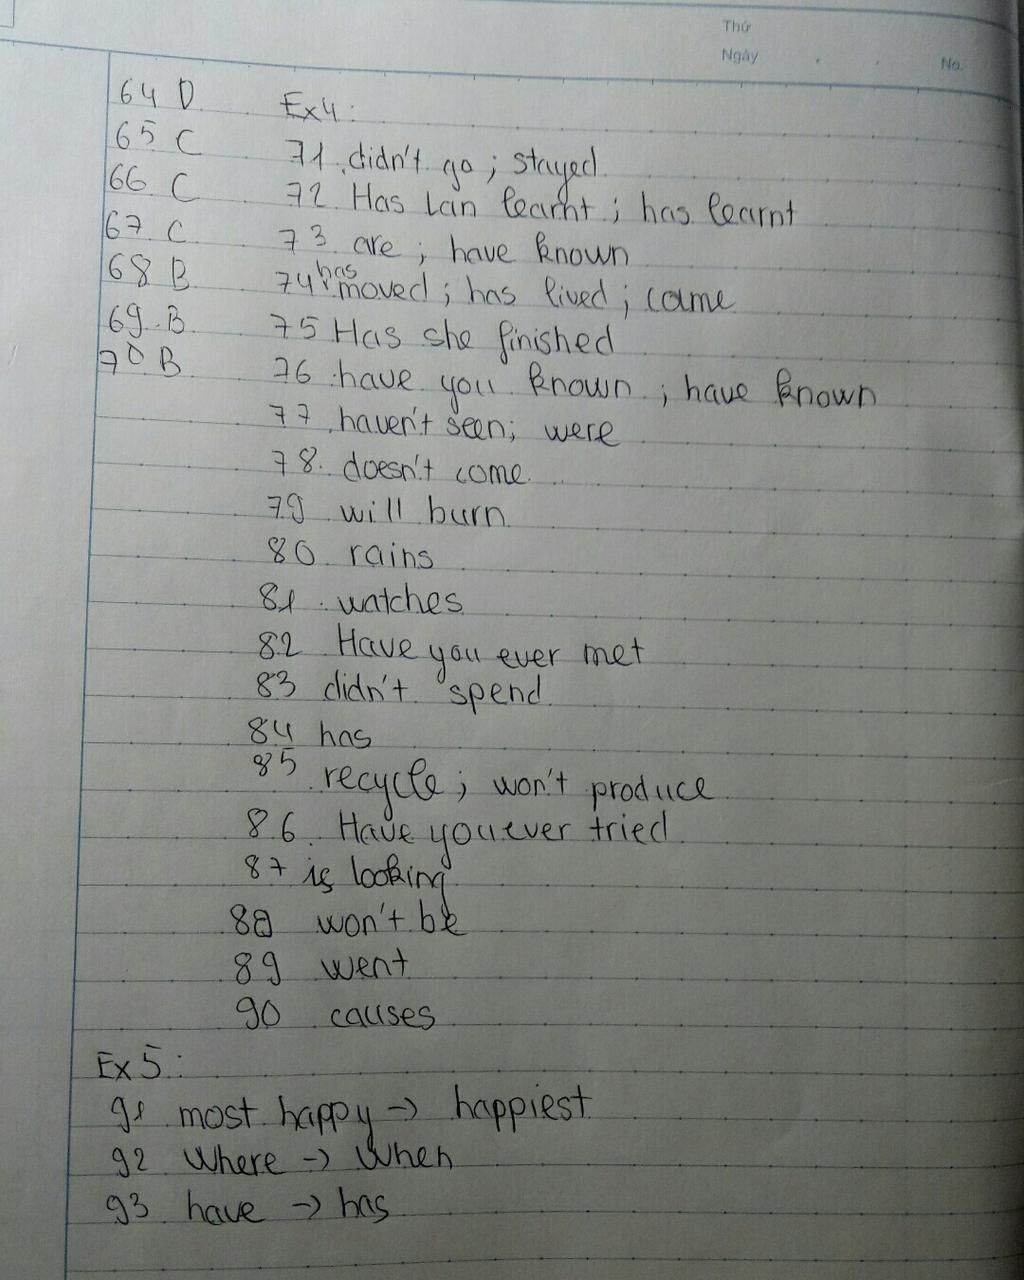 Thứ
Ngày No.
64 D Ex4:
65 C 71. didn't go; stayed
66 C 72. Has Lan learnt; has learnt
67. C 73. are; have known
68 B 74. has moved; has lived; came
69. B 75 Has she finished
70 B 76. have you known; have known
77. haven't seen; were
78. doesn't come
79 will burn
80. rains
81. watches
82 Have you ever met
83 didn't spend
84 has
85 recycle; won't produce
86. Have you ever tried
87 is looking
88 won't be
89 went
90 causes
Ex 5:
91 most happy -> happiest
92 Where -> When
93 have -> has